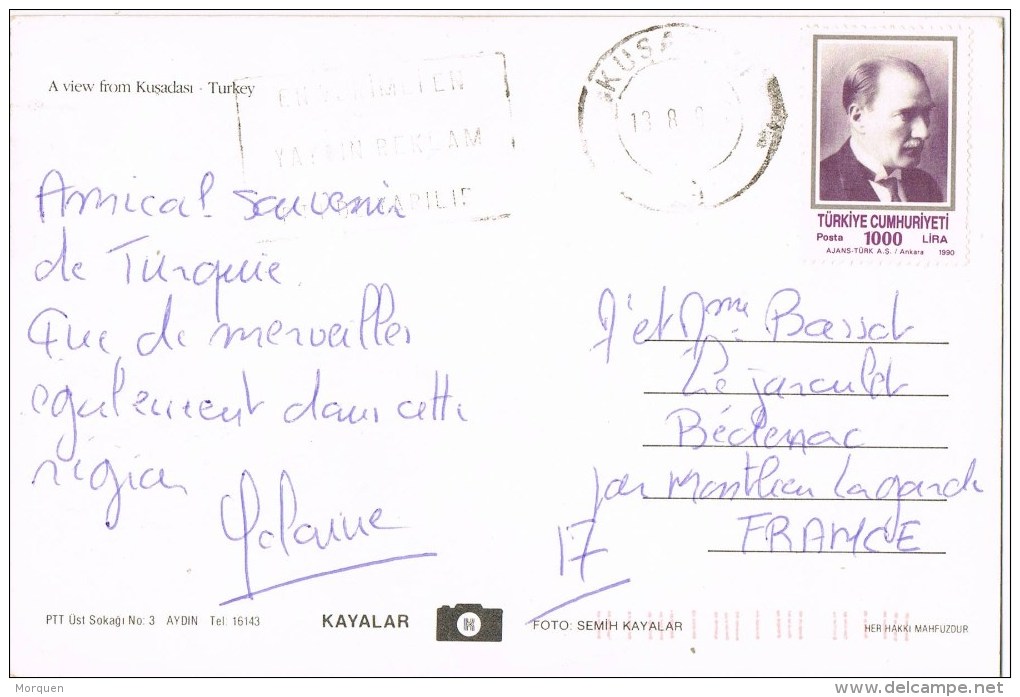 A view from Kuşadası - Turkey
YAYGIN REKLAM
KUŞA
TÜRKİYE CUMHURİYETİ
Posta 1000 LİRA
AJANS-TÜRK A.Ş. / Ankara 1990
Amical souvenir
de Turquie.
Que de merveilles
egalement dans cette
région
J' et Mme
Le
Bédenac
par Montlieu Lagarde
17 FRANCE
PTT Üst Sokağı No: 3 AYDIN Tel: 16143
KAYALAR
FOTO: SEMİH KAYALAR
HER HAKKI MAHFUZDUR
Morquen
delcampe.net